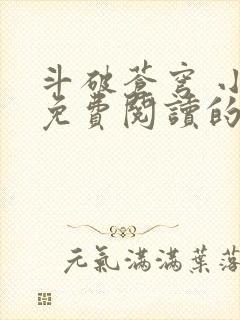 斗破蒼穹 小
免費閱讀的
元氣滿滿葉落